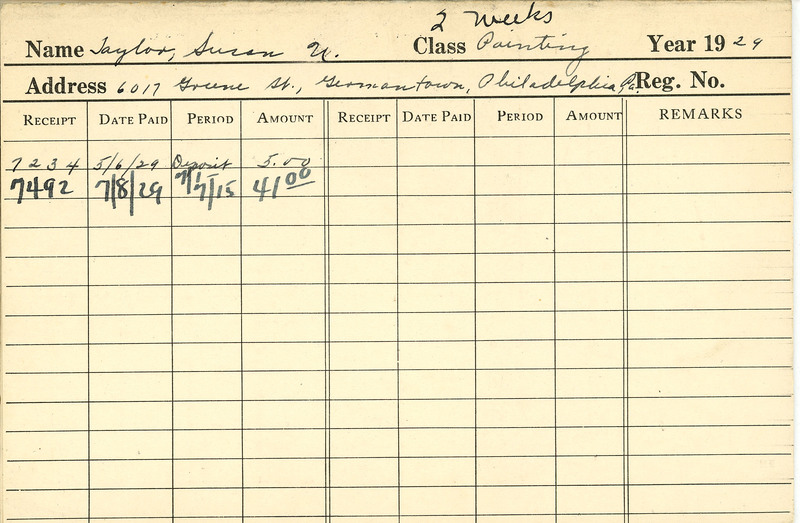 2 Weeks
Name Taylor, Susan N. Class Painting Year 19 29
Address 6017 Greene St., Germantown, Philadelphia Pa. Reg. No.
RECEIPT DATE PAID PERIOD AMOUNT RECEIPT DATE PAID PERIOD AMOUNT REMARKS
7234 5/6/29 Deposit 5.00
7492 7/8/29 7/1-7/15 41 00